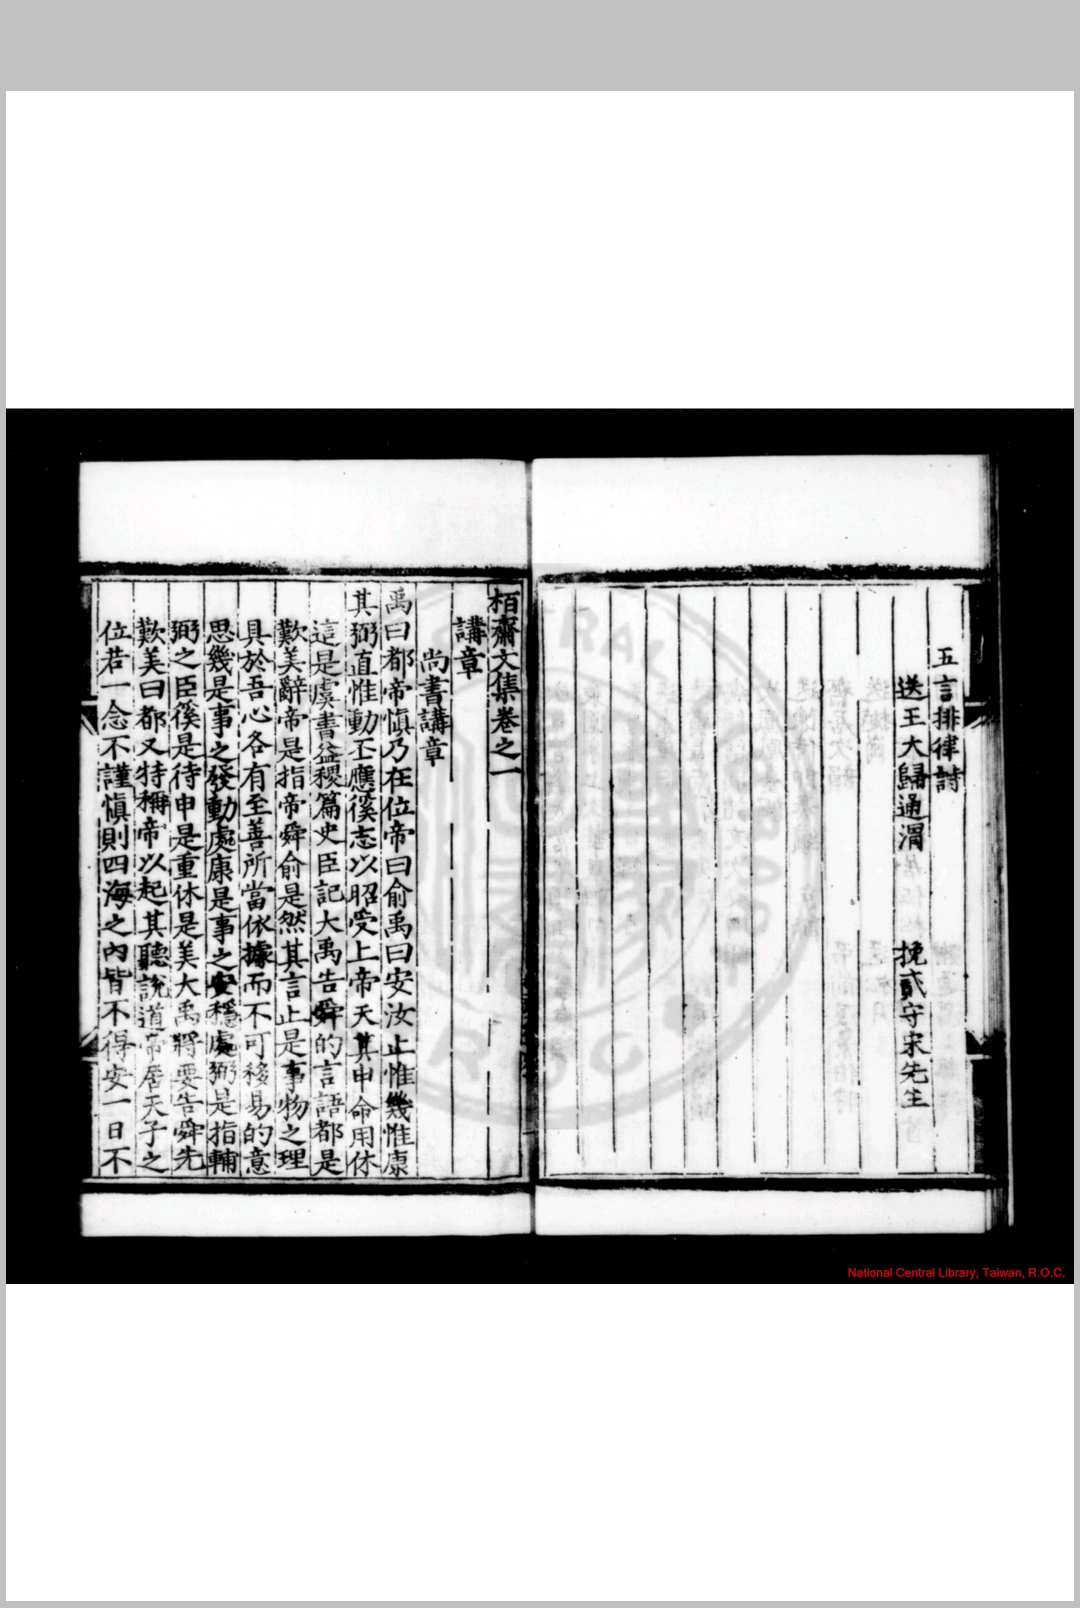 五言排律詩
送王大歸通渭 挽貳守宋先生
栢齋文集卷之一
講章
尚書講章
禹曰都帝慎乃在位帝曰俞禹曰安汝止惟幾惟康
其弼直惟動丕應徯志以昭受上帝天其申命用休
這是虞書益稷篇史臣記大禹告舜的言語都是
歎美辭帝是指帝舜俞是然其言止是事物之理
具於吾心各有至善所當依據而不可移易的意
思幾是事之發動處康是事之安穩處弼是指輔
弼之臣徯是待申是重休是美大禹將要告舜先
歎美曰都又特稱帝以起其聽說道帝居天子之
位若一念不謹慎則四海之內皆不得安一日不
National Central Library, Taiwan, R.O.C.